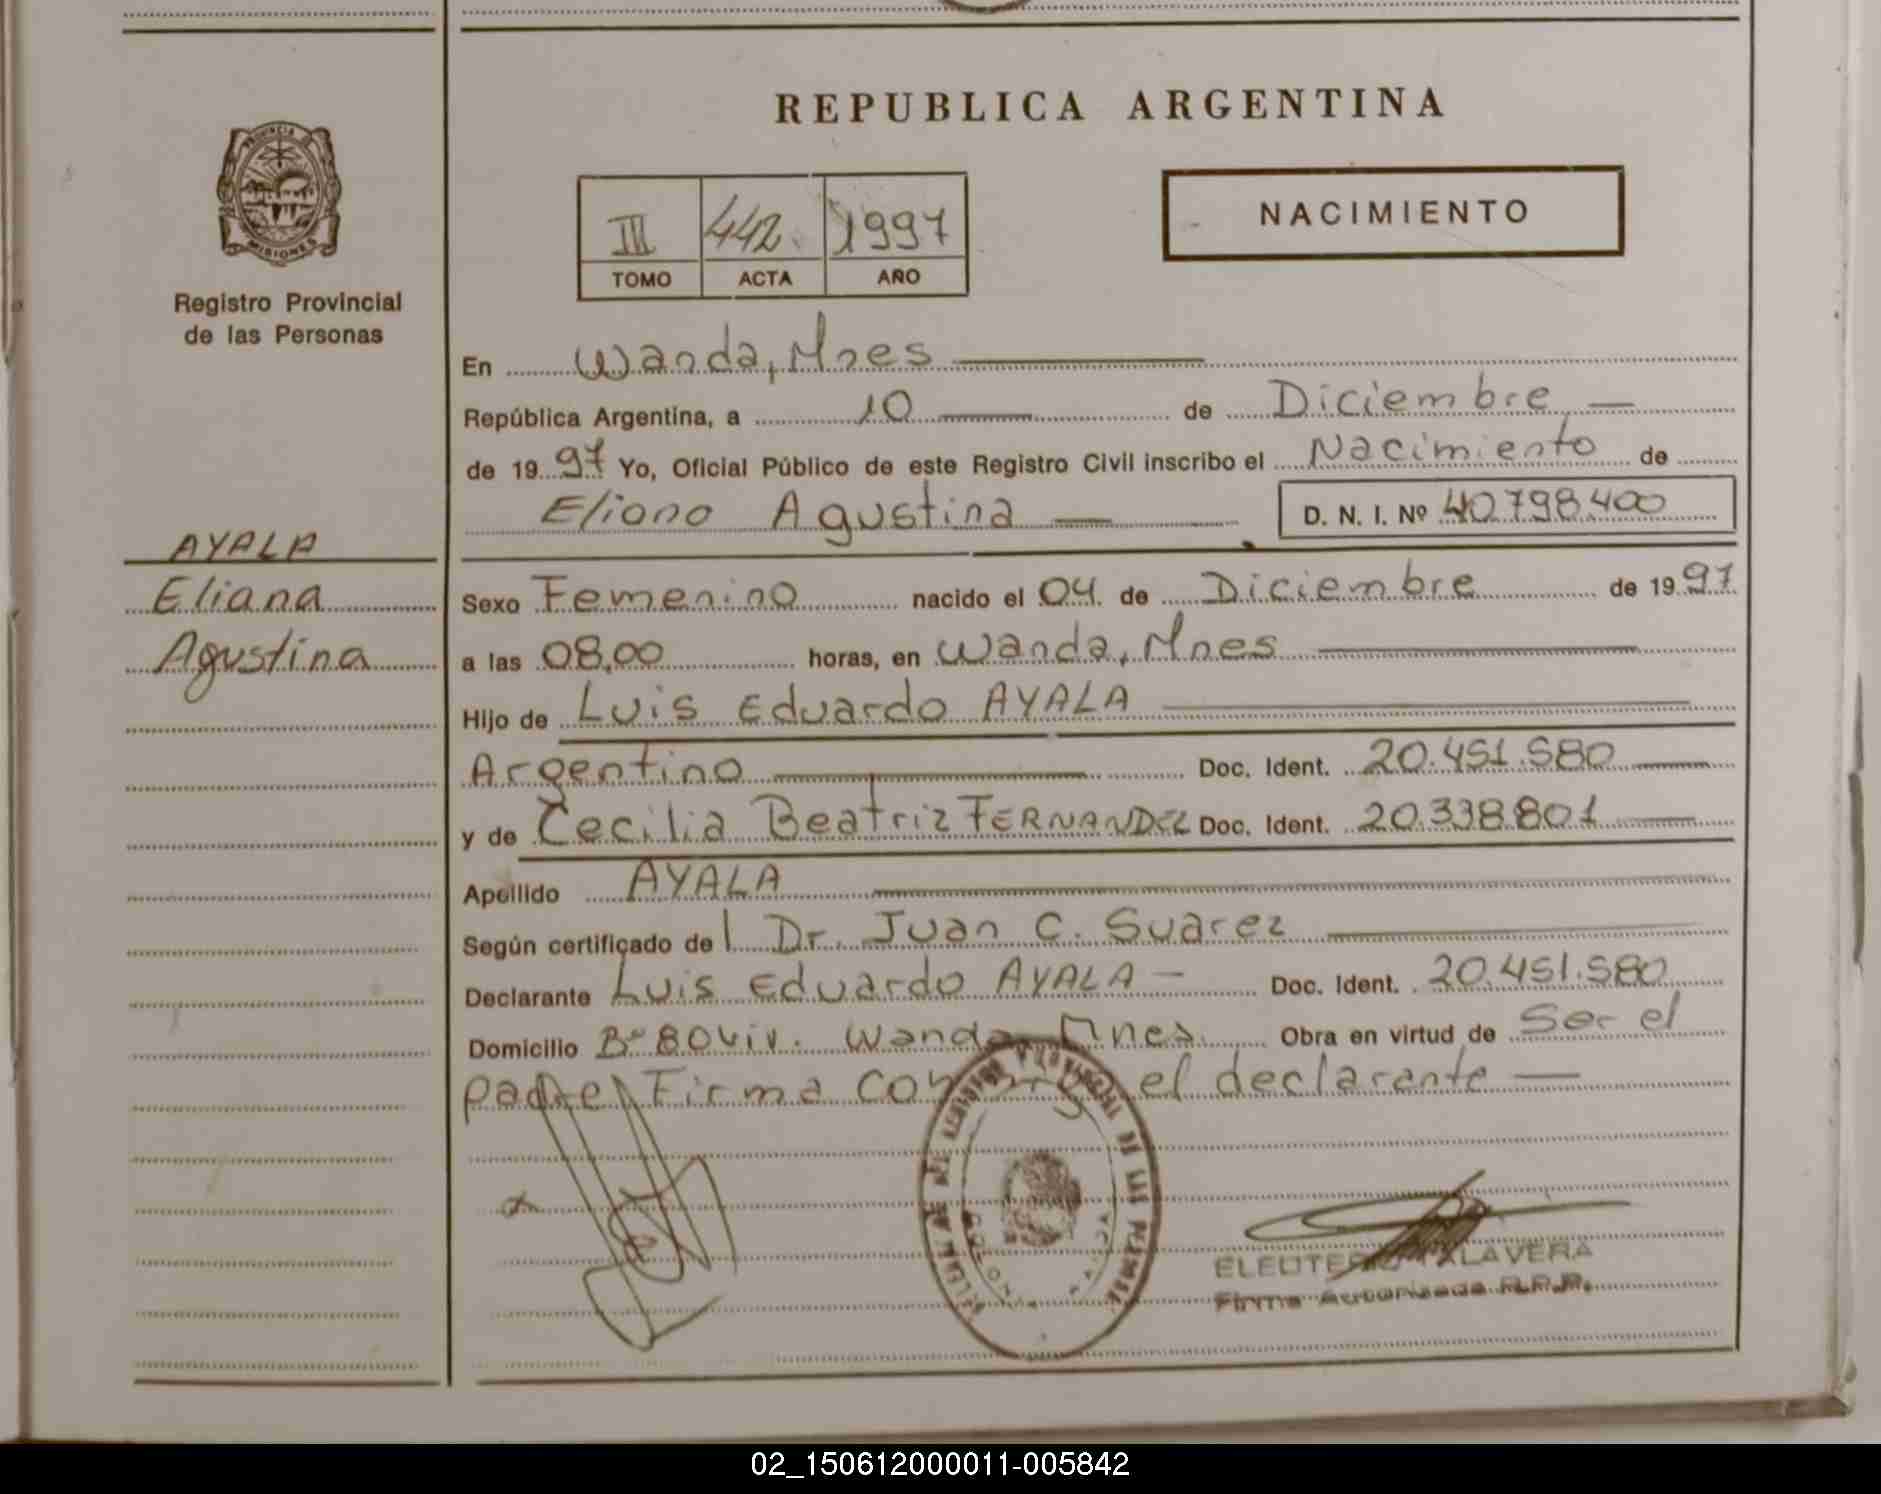 REPUBLICA ARGENTINA
PROVINCIA
MISIONES
Registro Provincial
de las Personas
III 442 1997
TOMO ACTA AÑO
NACIMIENTO
En Wanda, Mnes
República Argentina, a 10 de Diciembre
de 1997 Yo, Oficial Público de este Registro Civil inscribo el Nacimiento de
Eliana Agustina D. N. I. Nº 40.798.400
AYALA
Eliana
Agustina
Sexo Femenino nacido el 04 de Diciembre de 1997
a las 08,00 horas, en Wanda, Mnes
Hijo de Luis Eduardo AYALA
Argentino Doc. Ident. 20.451.580
y de Cecilia Beatriz FERNANDEZ Doc. Ident. 20.338.801
Apellido AYALA
Según certificado de l Dr. Juan C. Suarez
Declarante Luis Eduardo AYALA Doc. Ident. 20.451.580
Domicilio Bº 80 viv. Wanda, Mnes. Obra en virtud de Ser el
padre Firma conmigo el declarante
PROVINCIAL DE LAS PERSONAS
ELEUTERIO TALAVERA
Firma Autorizada R.P.P.
02_150612000011-005842